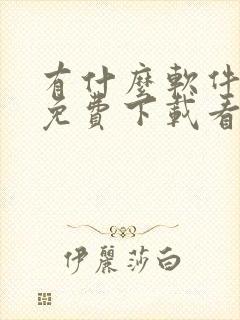 有什麼軟件
免費下載看
伊麗莎白